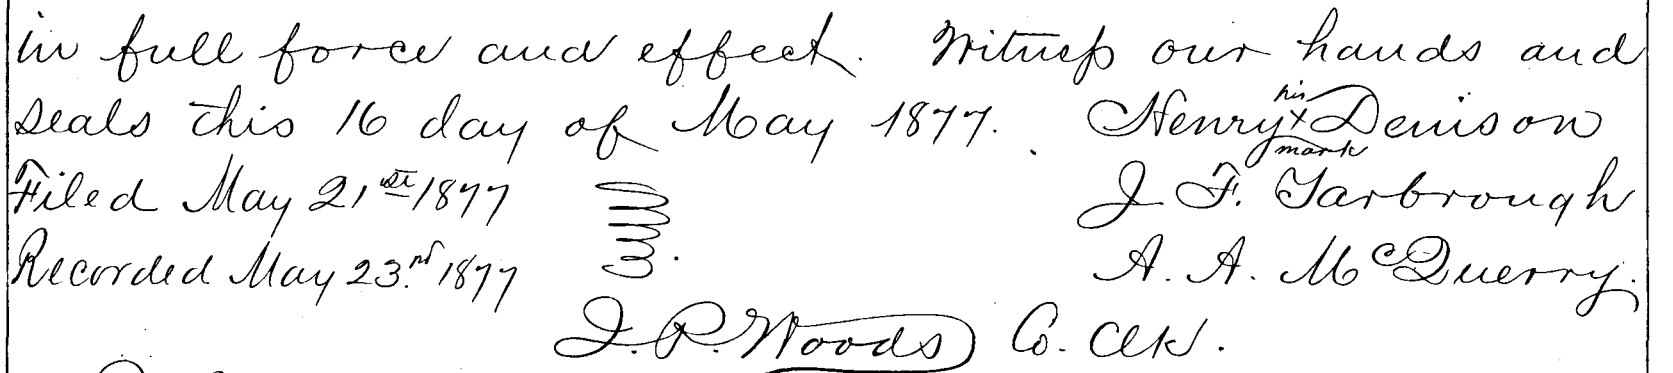 in full force and effect. Witness our hands and
seals this 16 day of May 1877. Henry his x mark Denison
Filed May 21st 1877 J. F. Yarbrough
Recorded May 23rd 1877 A. A. McQuerry.
J. P. Woods Co. Clk.